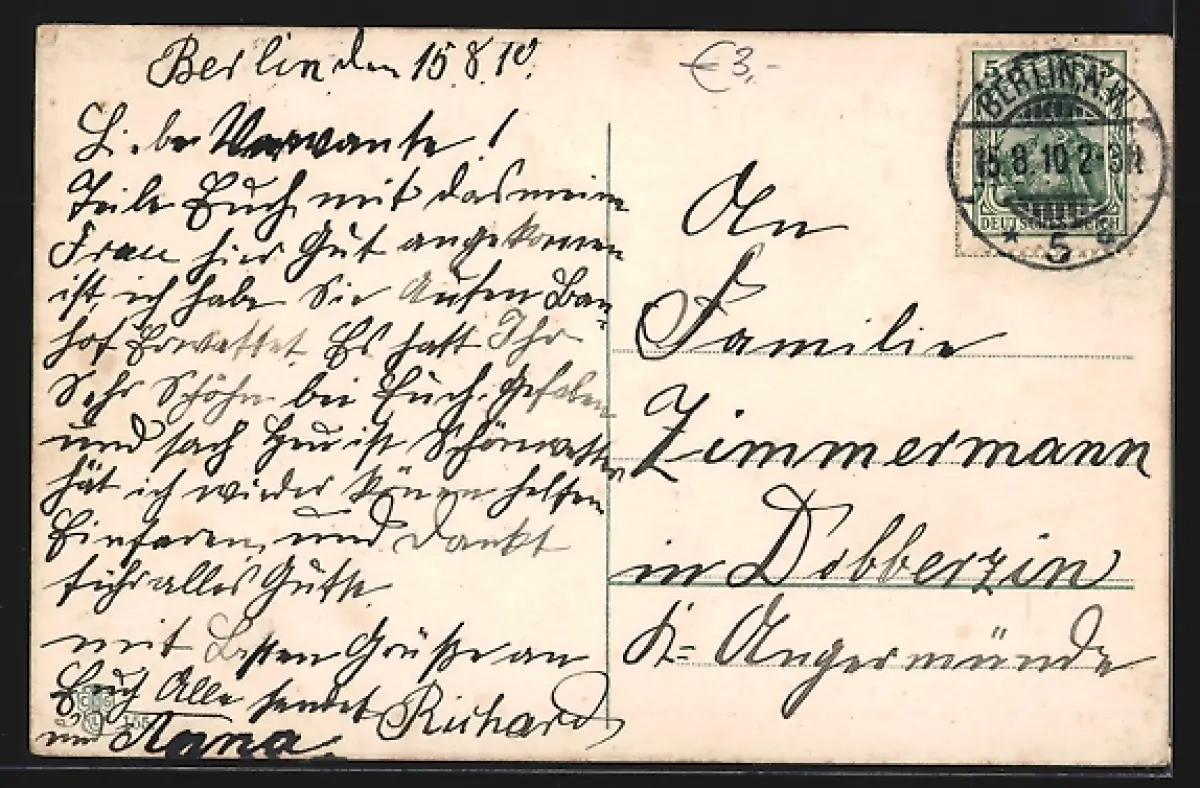 Berlin den 15.8.10.
Liebe Verwante!
Teile Euch mit das meine
Frau hier Gut angekomen
ist, ich habe Sie Aufen Ban-
hof Erwattet Es hatt Ihr
Sehr Schöhn bei Euch Gefalen
und sach Heu ist Schönwetter
hät ich wieder könen helfen
Einfaren, und Dankt
führ alles Gutte
mit Besten Grüße an
Euch Alle sendet Richard
und Anna
€3,-
BERLIN, N.W.
15.8.10.2-3N.
* 5 *
DEUTSCHES REICH
An
Familie
Zimmermann
in Dobberzin
Kr= Angermünde